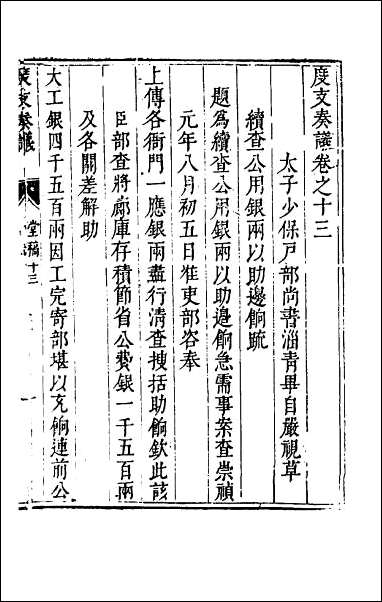 度支奏議卷之十三
太子少保戶部尚書淄青畢自嚴視草
續查公用銀兩以助邊餉疏
題為續查公用銀兩以助邊餉急需事案查崇禎
元年八月初五日准吏部咨奉
上傳各衙門一應銀兩盡行清查搜括助餉欽此該
臣部查將廊庫存積節省公費銀一千五百兩
及各關差解助
大工銀四千五百兩因工完寄部堪以充餉連前公
度支奏議
堂稿十三
一